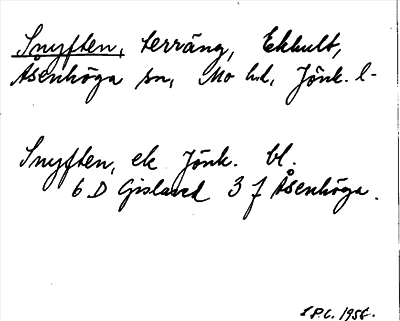 Snyften, terräng, Ekhult,
Åsenhöga sn, Mo hd, Jönk. l-
Snyften, ek Jönk. bl.
6 D Gislaved 3 f Åsenhöga.
1958.